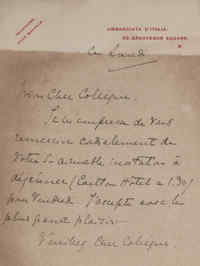 AMBASCIATA D'ITALIA.
20, GROSVENOR SQUARE.
ce Lundi
Mon Cher Collègue,
Je m'empresse de vous
remercier cordialement de
votre si aimable invitation à
déjeuner (Carlton Hotel à 1.30)
pour Vendredi. J'accepte avec le
plus grand plaisir
Veuillez Cher Collègue